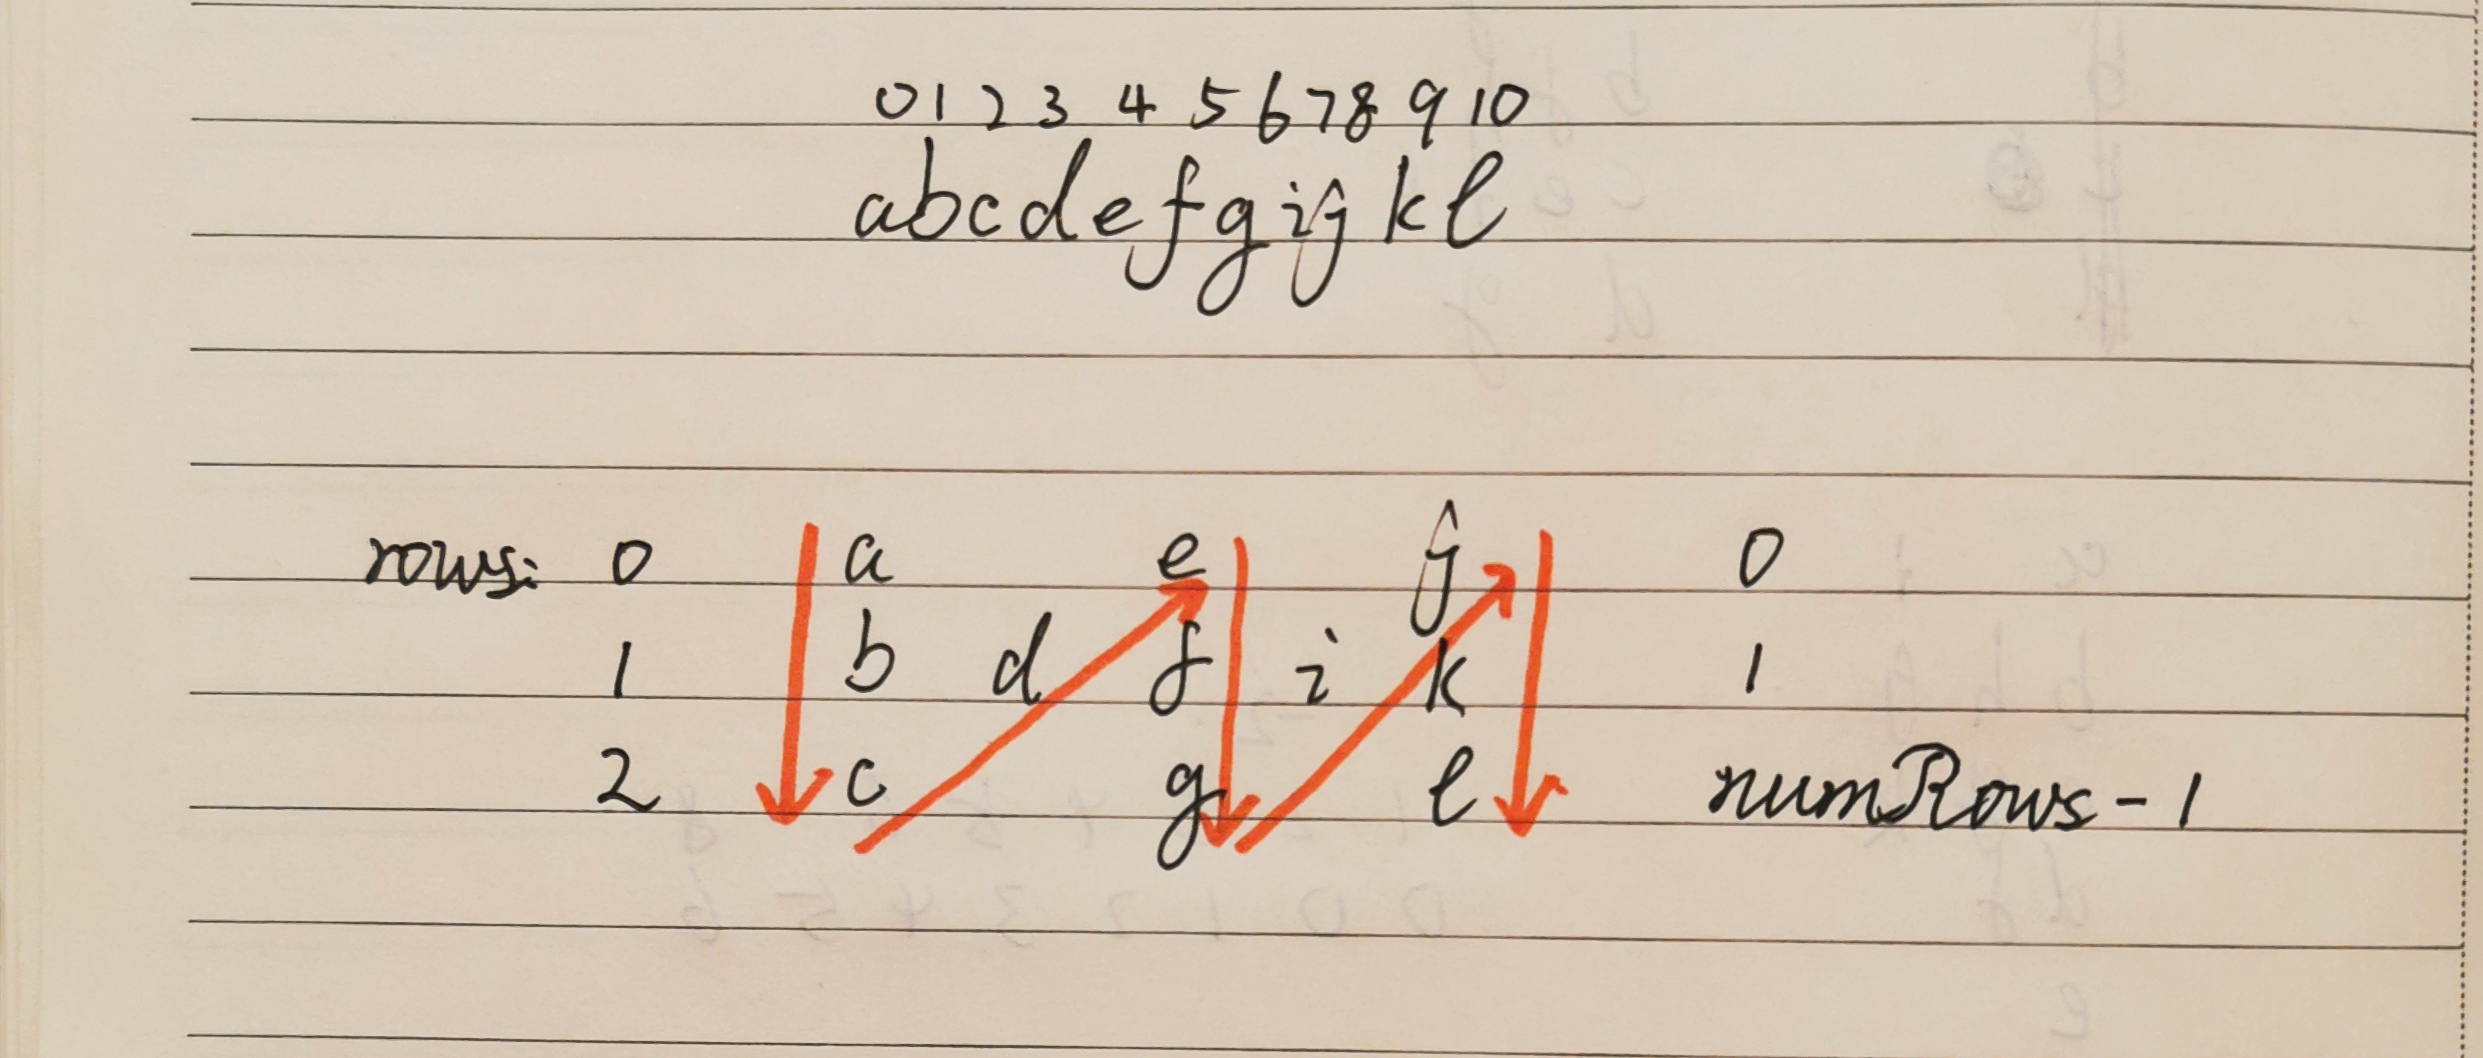 0 1 2 3 4 5 6 7 8 9 10
abcdefgijkl
rows: 0 a e j 0
1 b d f i k 1
2 c g l numRows-1